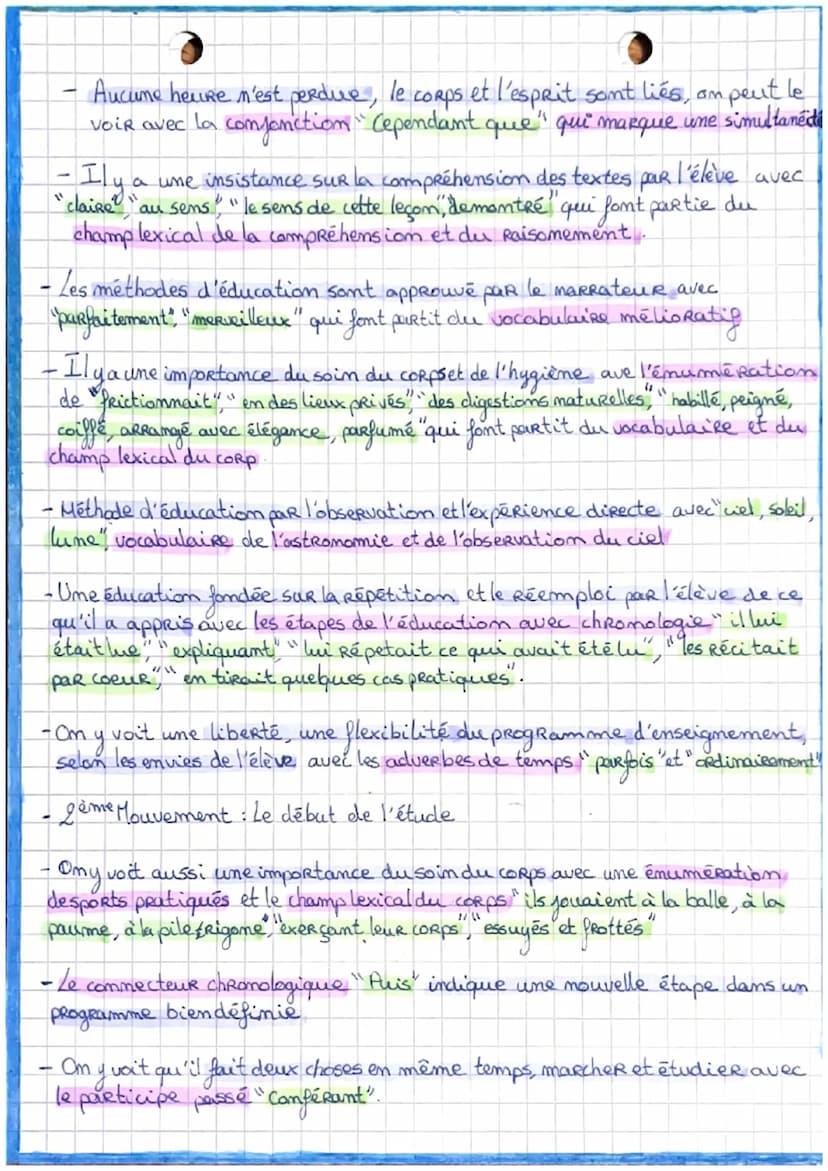 - Aucune heure n'est perdue, le corps et l'esprit sont liés, on peut le
voir avec la conjonction "Cependant que" qui marque une simultanéité
- Il y a une insistance sur la compréhension des textes par l'élève avec
"claire", "au sens", "le sens de cette leçon", "démontré" qui font partie du
champ lexical de la compréhension et du raisonnement.
- Les méthodes d'éducation sont approuvé par le narrateur avec
"parfaitement", "merveilleux" qui font partit du vocabulaire mélioratif
- Il y a une importance du soin du corps et de l'hygiène ave l'énumération
de "frictionnait", "en des lieux privés", "des digestions naturelles", "habillé, peigné,
coiffé, arrangé avec élégance, parfumé" qui font partit du vocabulaire et du
champ lexical du corp
- Méthode d'éducation par l'observation et l'expérience directe avec "ciel, soleil,
lune", vocabulaire de l'astronomie et de l'observation du ciel
- Une éducation fondée sur la répétition et le réemploi par l'élève de ce
qu'il a appris avec les étapes de l'éducation avec chronologie "il lui
était lue", "expliquant", "lui répetait ce qui avait été lu", "les récitait
par coeur", "en tirait quelques cas pratiques".
- On y voit une liberté, une flexibilité du programme d'enseignement,
selon les envies de l'élève avec les adverbes de temps "parfois" et "ordinairement"
- 2ème Mouvement : Le début de l'étude
- On y voit aussi une importance du soin du corps avec une énumération
des sports pratiqués et le champ lexical du corps "ils jouaient à la balle, à la
paume, à la pile trigone", "exerçant leur corps", "essuyés et frottés"
- Le connecteur chronologique "Puis" indique une nouvelle étape dans un
programme bien définie
- On y voit qu'il fait deux choses en même temps, marcher et étudier avec
le participe passé "Conférant".